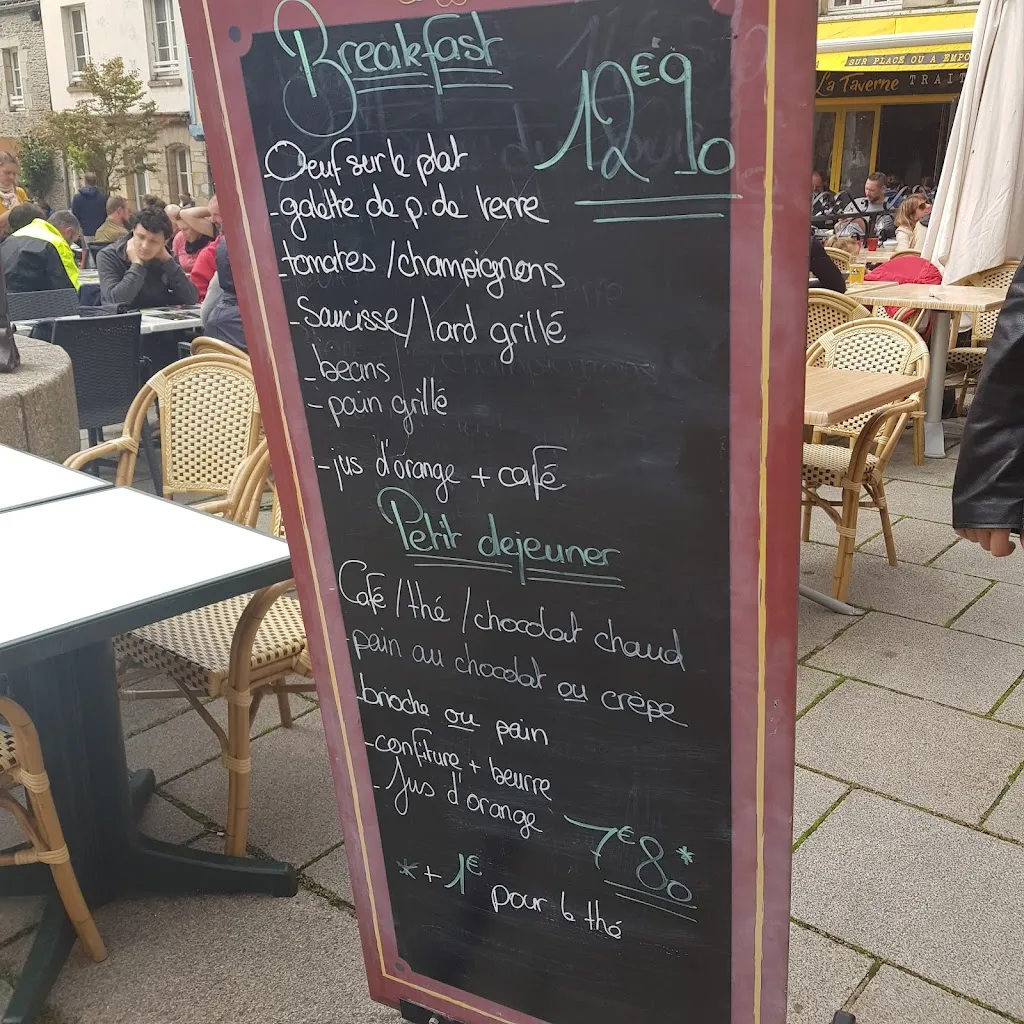 Breakfast
12€90
- Oeuf sur le plat
- galette de p. de terre
- tomates / champignons
- Saucisse / lard grillé
- beans
- pain grillé
- jus d'orange + café
Petit dejeuner
Café / thé / chocolat chaud
- pain au chocolat ou crêpe
- brioche ou pain
- confiture + beurre
- Jus d'orange
7€80*
* + 1€ pour le thé
SUR PLACE OU A EMPO
La Taverne TRAIT